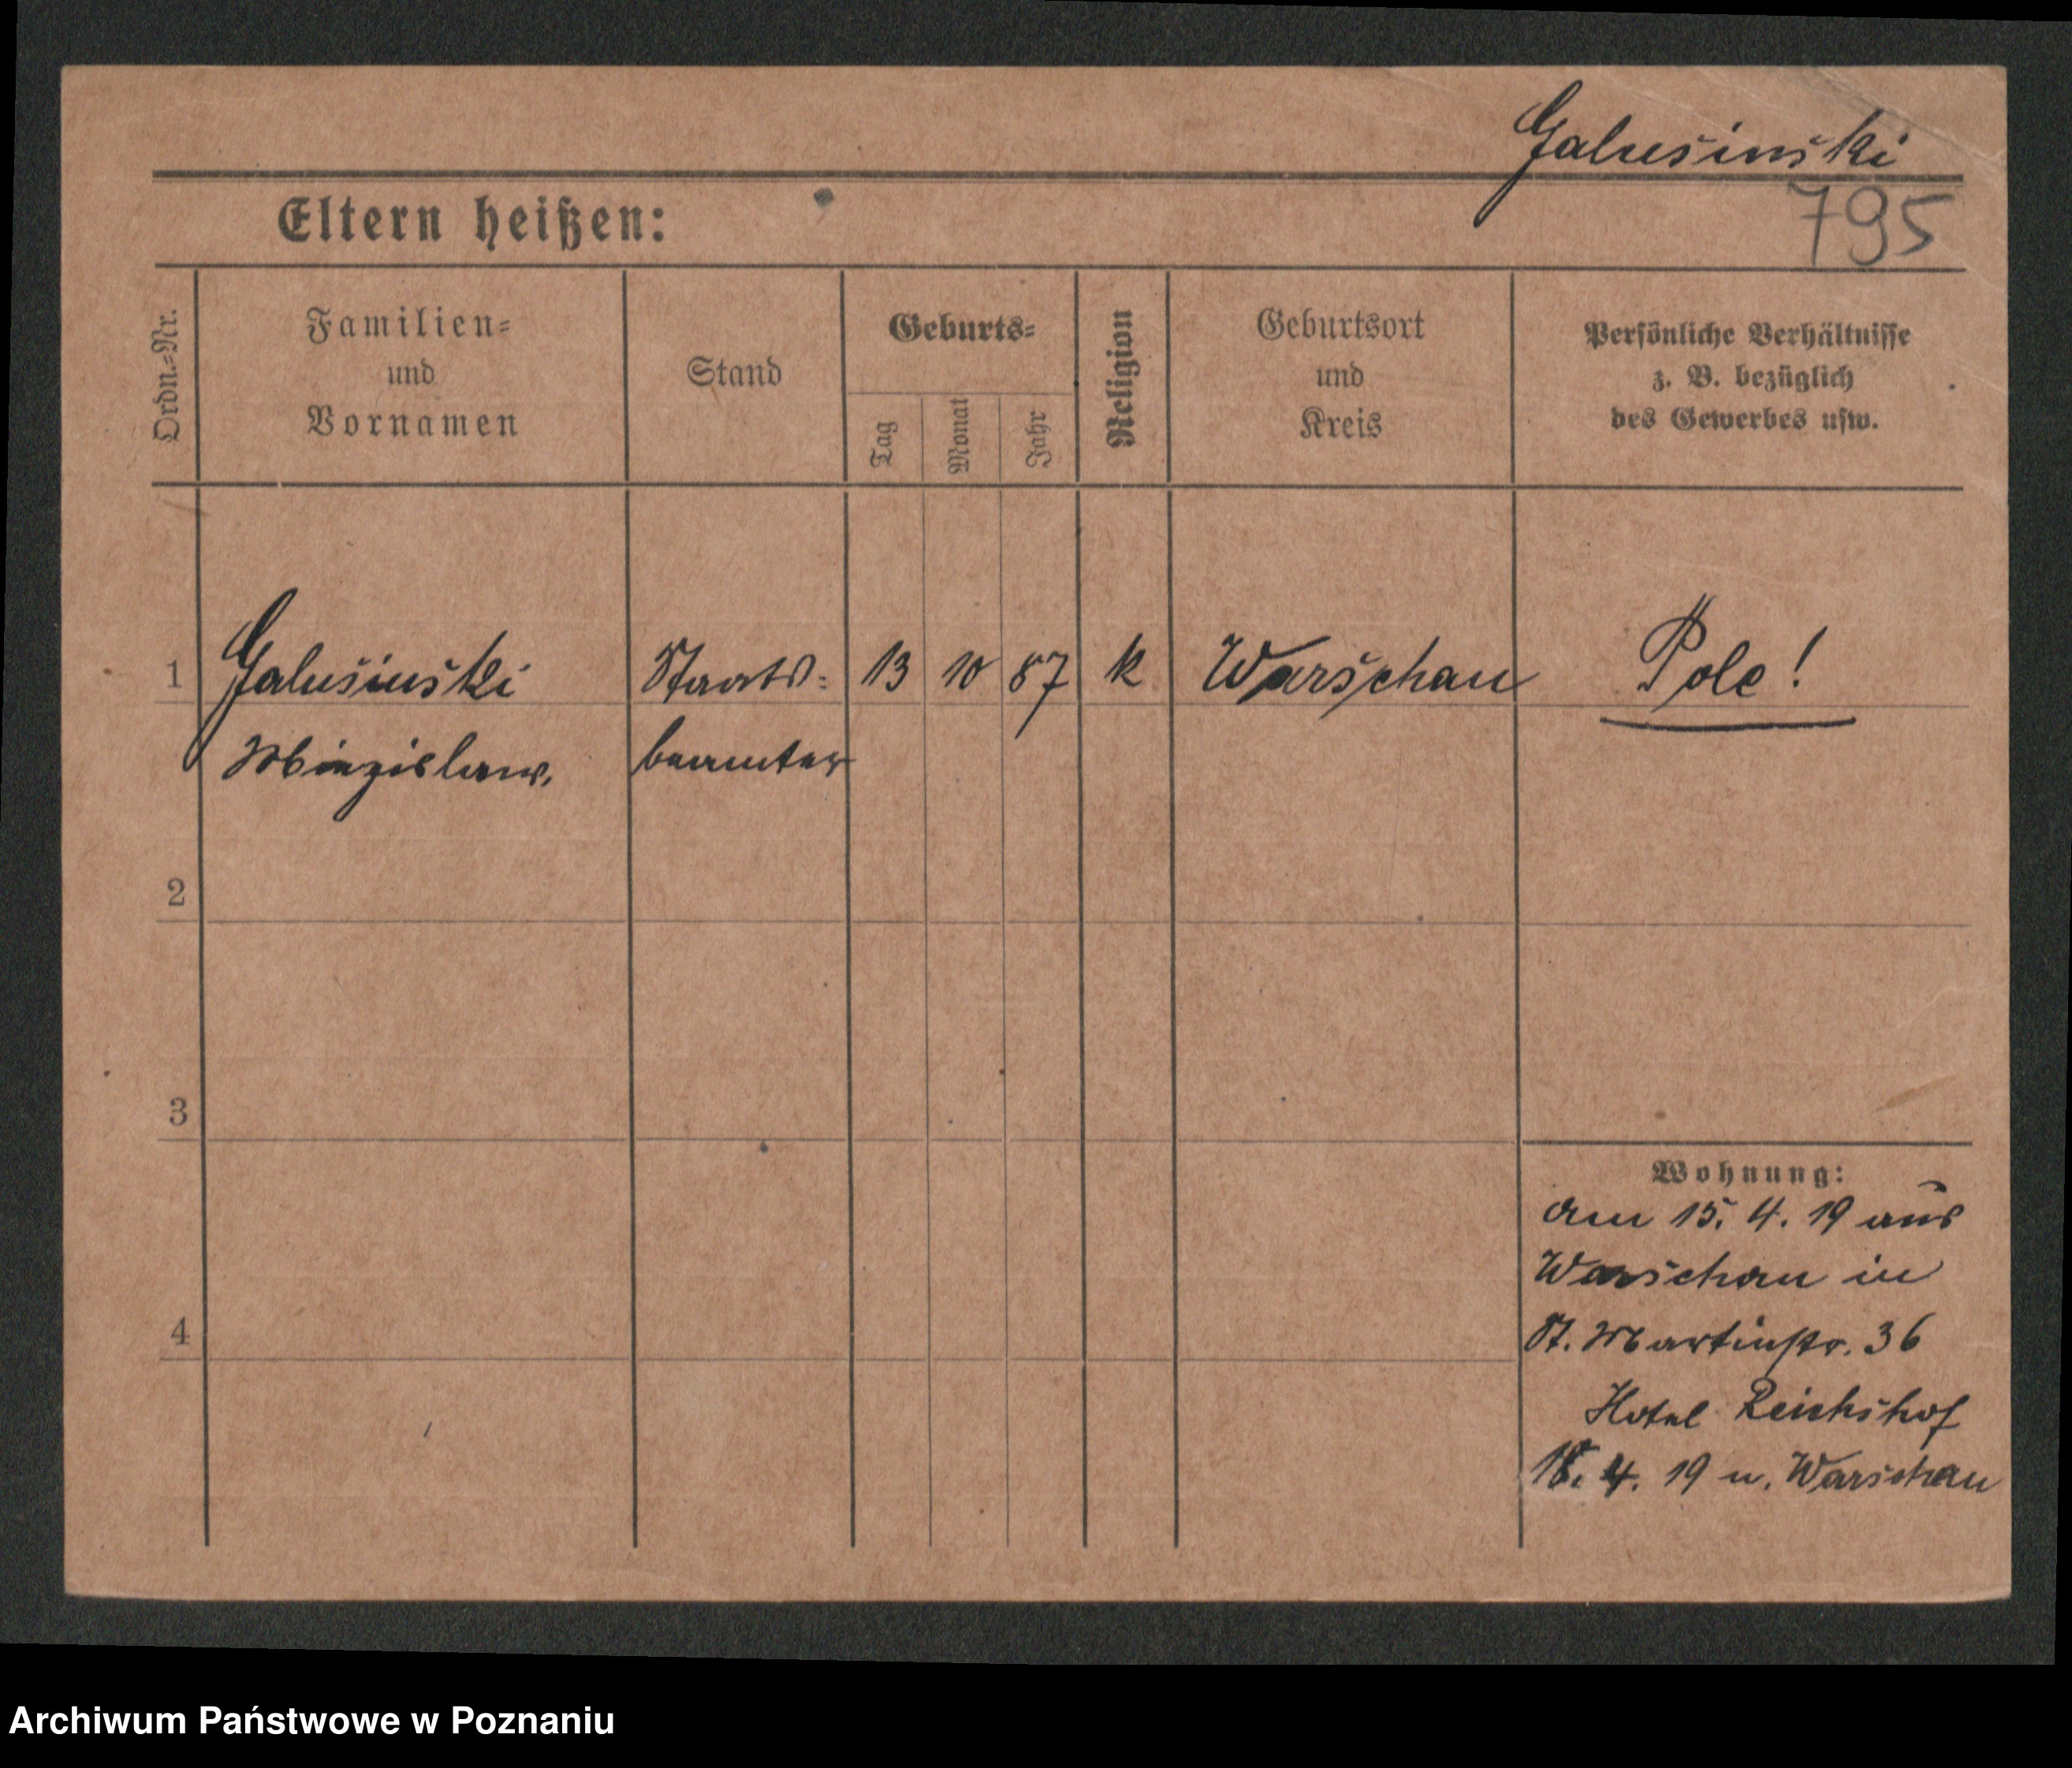 Galusinski
795
Eltern heißen:
Ordn.-Nr.
Familien-
und
Vornamen
Stand
Geburts-
Tag
Monat
Jahr
Religion
Geburtsort
und
Kreis
Persönliche Verhältnisse
z. B. bezüglich
des Gewerbes usw.
1 Galusinski Staats- 13 10 87 k Warschau Pole!
Miezislaw, beamter
2
3
4
Wohnung:
am 15. 4. 19 aus
Warschau in
St. Martinstr. 36
Hotel Reichshof
18. 4. 19 n. Warschau
Archiwum Państwowe w Poznaniu